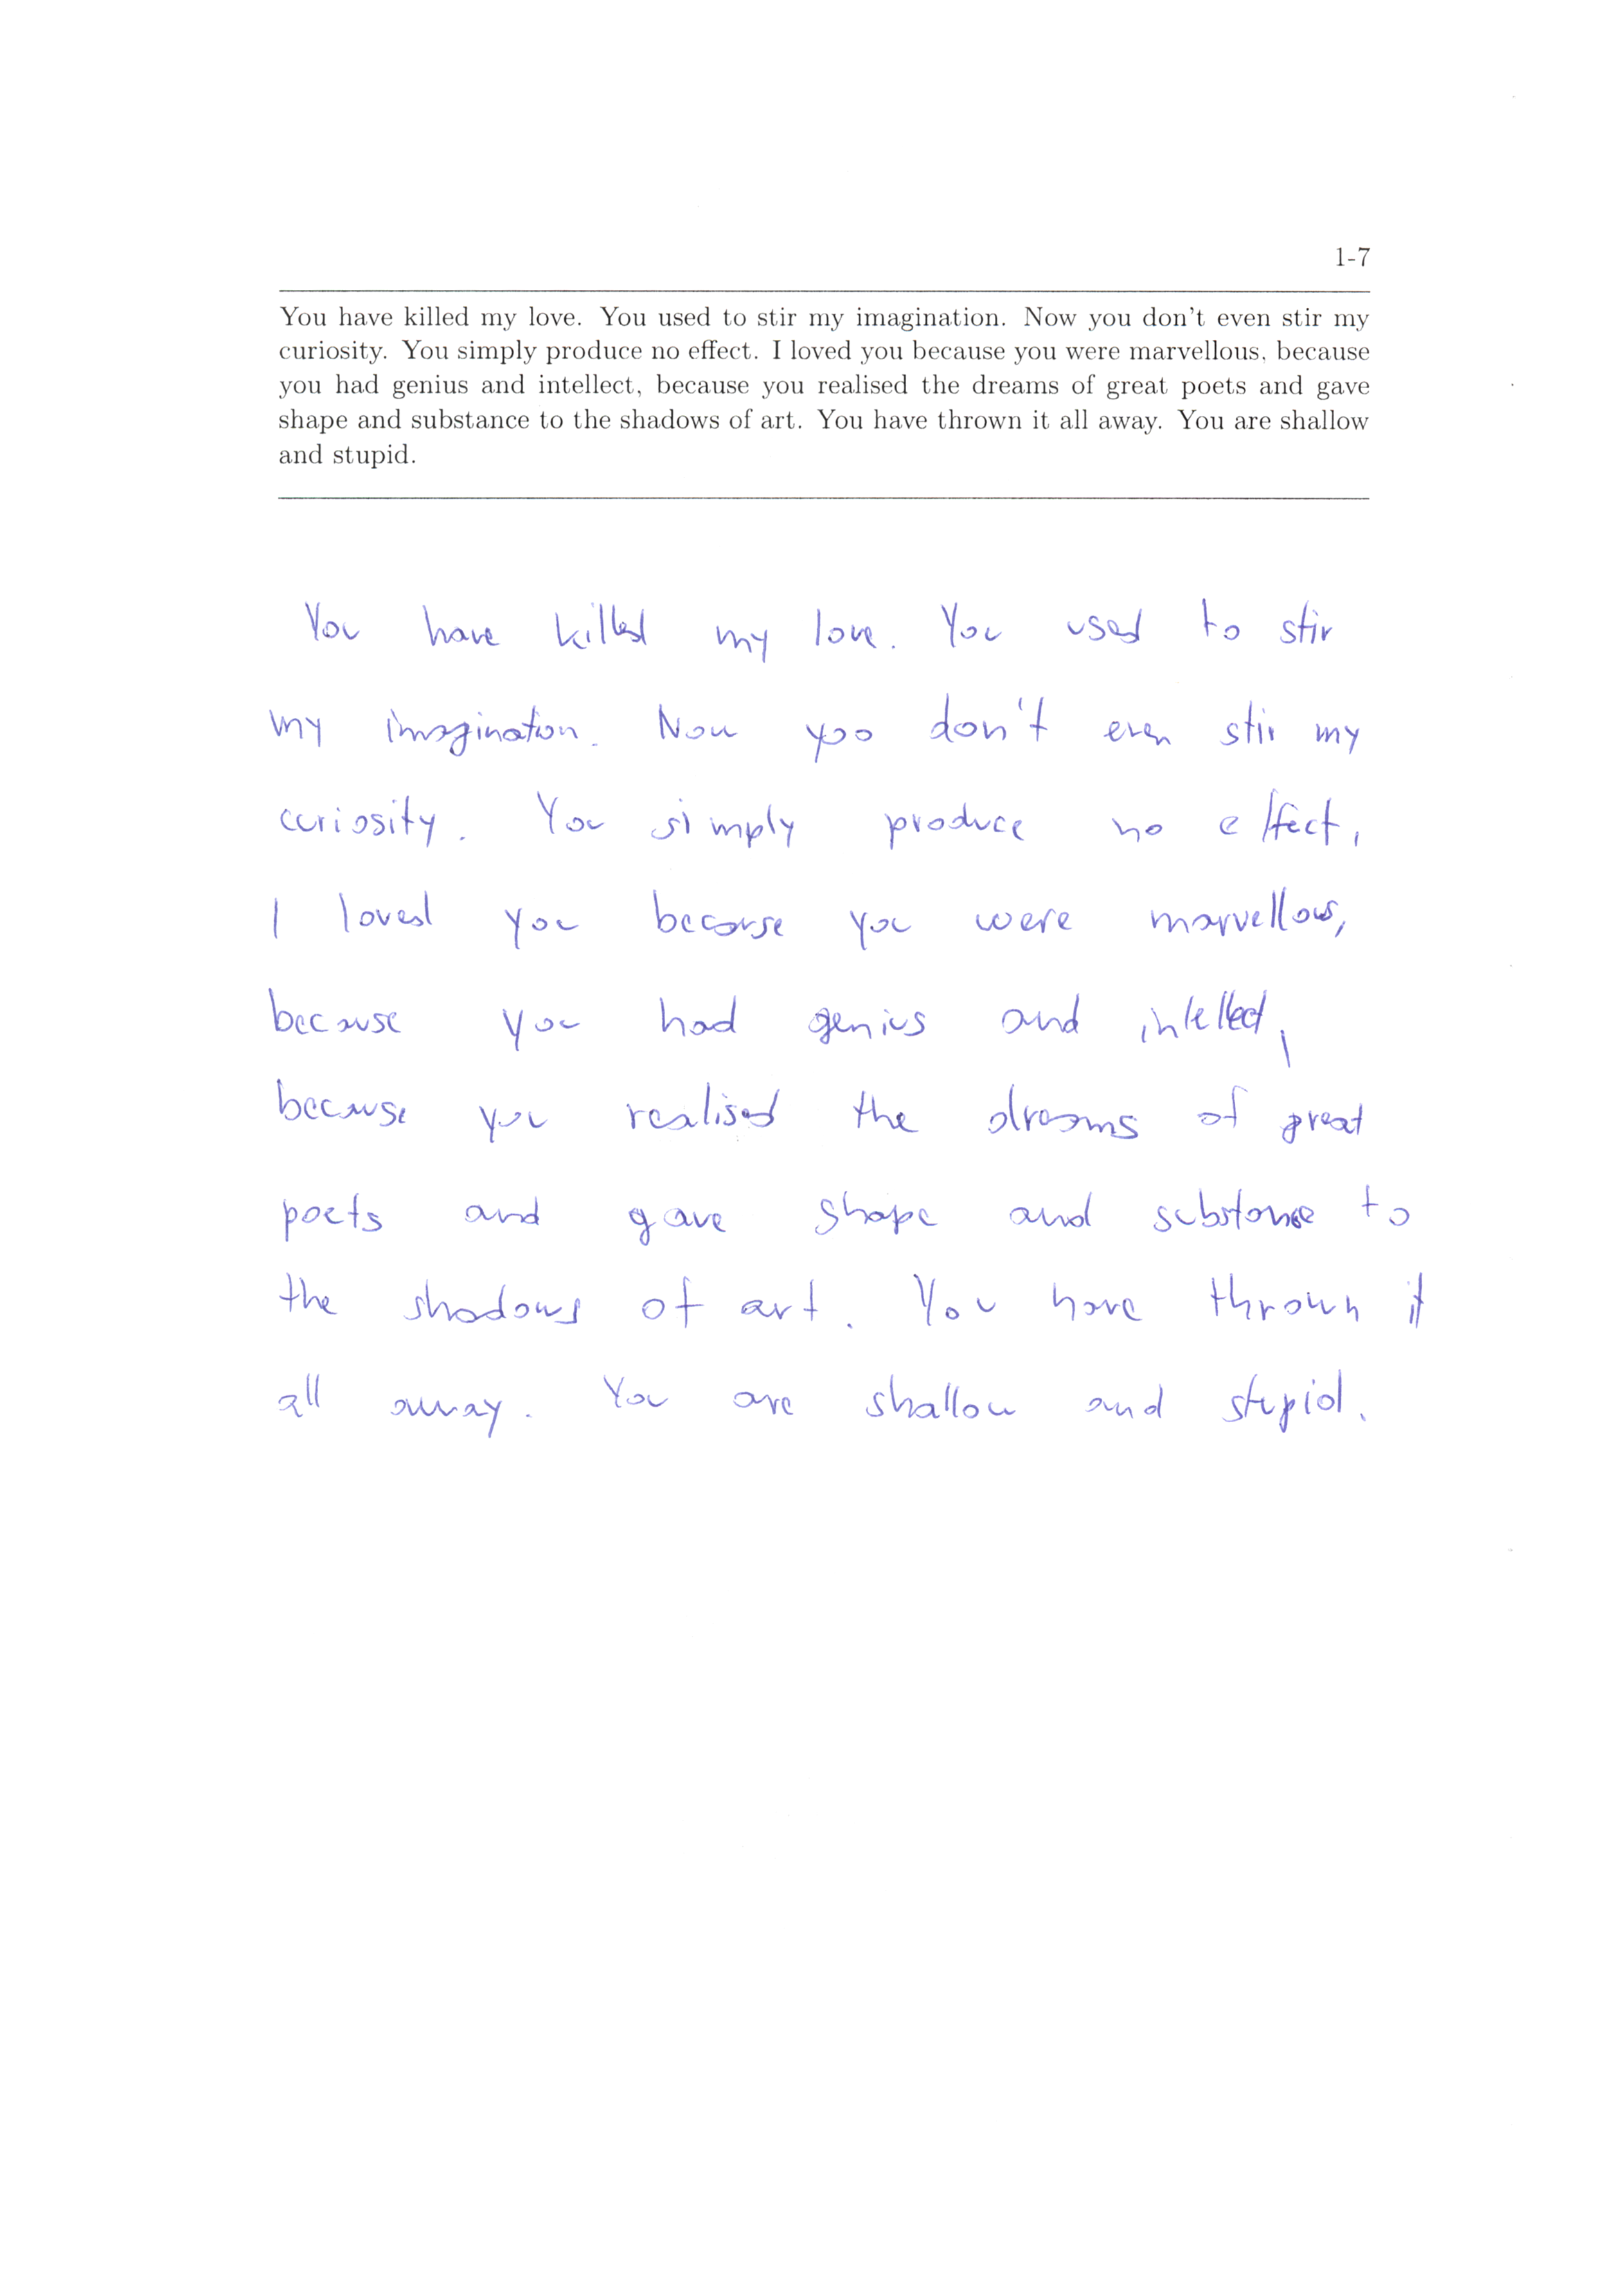 1-7
You have killed my love. You used to stir my imagination. Now you don't even stir my
curiosity. You simply produce no effect. I loved you because you were marvellous, because
you had genius and intellect, because you realised the dreams of great poets and gave
shape and substance to the shadows of art. You have thrown it all away. You are shallow
and stupid.
You have killed my love. You used to stir
my imagination. Now you don't even stir my
curiosity. You simply produce no effect,
I loved you because you were marvellous,
because you had genius and intellect,
because you realised the dreams of great
poets and gave shape and substance to
the shadows of art. You have thrown it
all away. You are shallow and stupid.